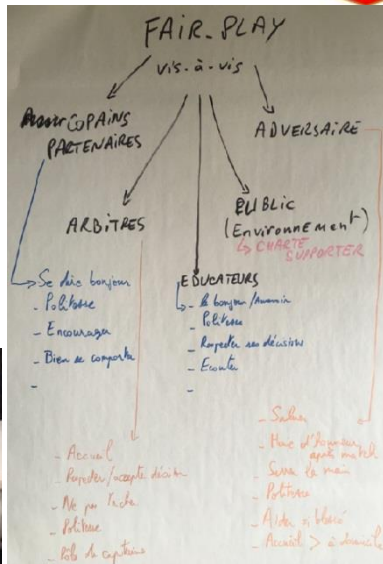 FAIR-PLAY
vis-à-vis
COPAINS
PARTENAIRES
ADVERSAIRE
ARBITRES
PUBLIC
(Environnement)
↳ CHARTE
SUPPORTER
→ Se dire bonjour
- Politesse
- Encourager
- Bien se comporter
-
EDUCATEURS
↳ - le bonjour/
- Politesse
- Respecter ses décisions
- Ecouter
-
- Accueil
- Respecter/accepte décision
- Ne pas
- Politesse
- Rôle du capitaine
- Saluer
- Haie d'honneur
après match
- Serrer la main
- Politesse
- Aider si blessé
- Accueil > à domicile